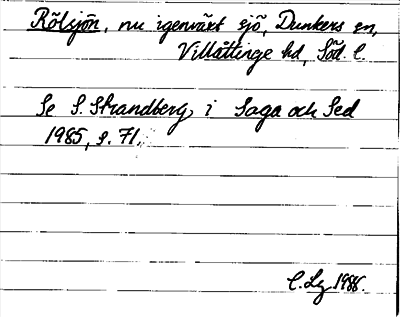 Rölsjön, nu igenväxt sjö, Dunkers sn,
Villåttinge hd, Söd. l.
Se S. Strandberg, i Saga och Sed
1985, s. 71.
C. Lg 1986.